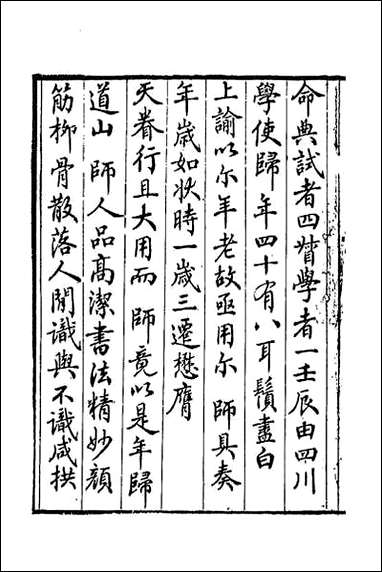 命典試者四督學者一壬辰由四川
學使歸年四十有八耳鬚盡白
上諭以尔年老故亟用尔 師具奏
年歲如狀時一歲三遷懋膺
天眷行且大用而 師竟以是年歸
道山 師人品高潔書法精妙顏
筋柳骨散落人閒識與不識咸拱